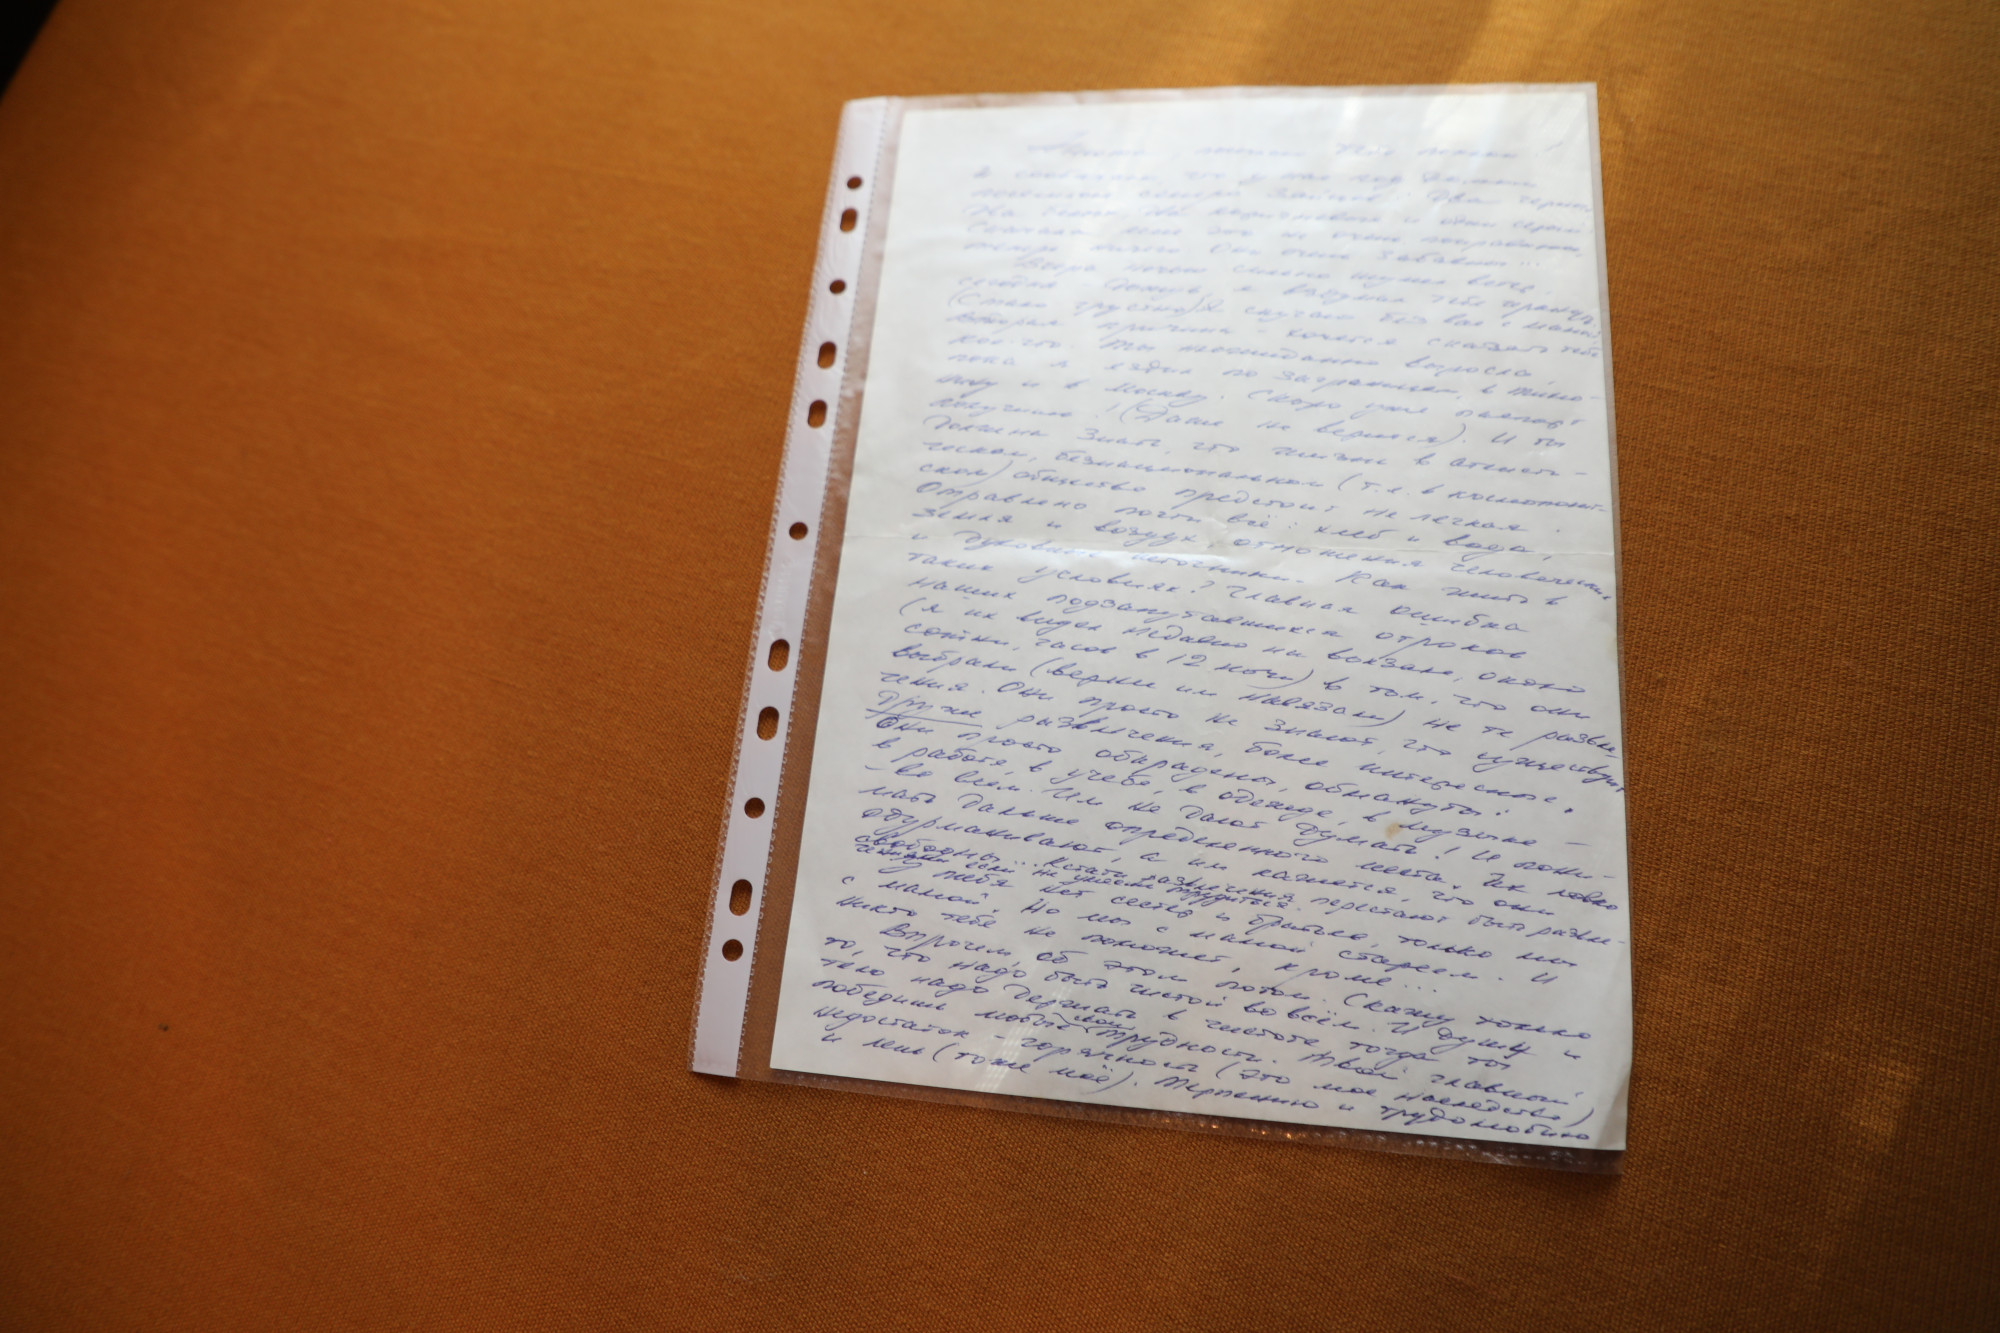 и сообщаю, что у нас под домом
поселилось семеро зайцев: два черно,
два белых, два коричневых и один серый
Сначала мне это не очень понравилось,
теперь ничего. Они очень забавны...
Вчера ночью сильно шумел ветер.
сегодня дождь, и я вздумал тебе
(Стало грустно) Я скучаю без вас с мамой
Вторая причина – хочется сказать тебе
кое-что. Ты неожиданно выросла,
пока я ездил по заграницам, в
и в Москву. Скоро уже паспорт
получишь! (Даже не верится). И ты
должна знать, что жизнь в атеисти-
ческом, безнациональном (т.е. в космополит-
ском) обществе предстоит не легкая.
Отравлено почти всё: хлеб и вода,
земля и воздух, отношения человеческие
и духовные источники. Как жить в
таких условиях? Главная ошибка
наших подзапутавшихся отроков
(я их видел недавно на вокзале, около
сотни, часов в 12 ночи) в том, что они
выбрали (вернее им навязали) не те развле-
чения. Они просто не знают, что существуют
другие развлечения, более интересные.
Они просто обкрадены, обмануты:
в работе, в учебе, в одежде, в музыке –
– во всем. Им не дают думать! И пони-
мать дальше определенного места. Их ловко
одурманивают, а им кажется, что они
свободны... Кстати развлечения перестают быть развле-
чениями если не умеешь трудиться.
У тебя нет сестер и братьев, только мы
с мамой. Но мы с мамой стареем. И
никто тебе не поможет, кроме...
Впрочем, об этом потом. Скажу только
то, что надо быть чистой во всём. И душу и
тело надо держать в чистоте тогда ты
победишь любые свои трудности. Твой главный
недостаток – горячность (это мое наследство)
и лень (тоже моё). Терпению и трудолюбию